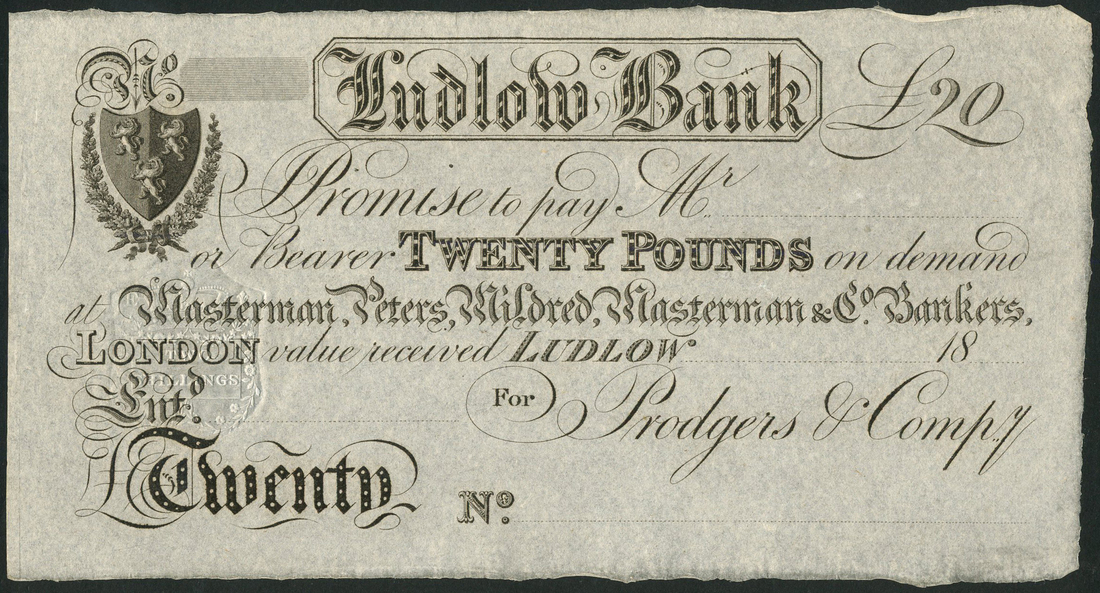 No
Ludlow Bank
£20
I Promise to pay Mr
or Bearer TWENTY POUNDS on demand
at Masterman, Peters, Mildred, Masterman & Co. Bankers,
LONDON value received LUDLOW 18
Entd.
For Prodgers & Compy
£ Twenty
No.